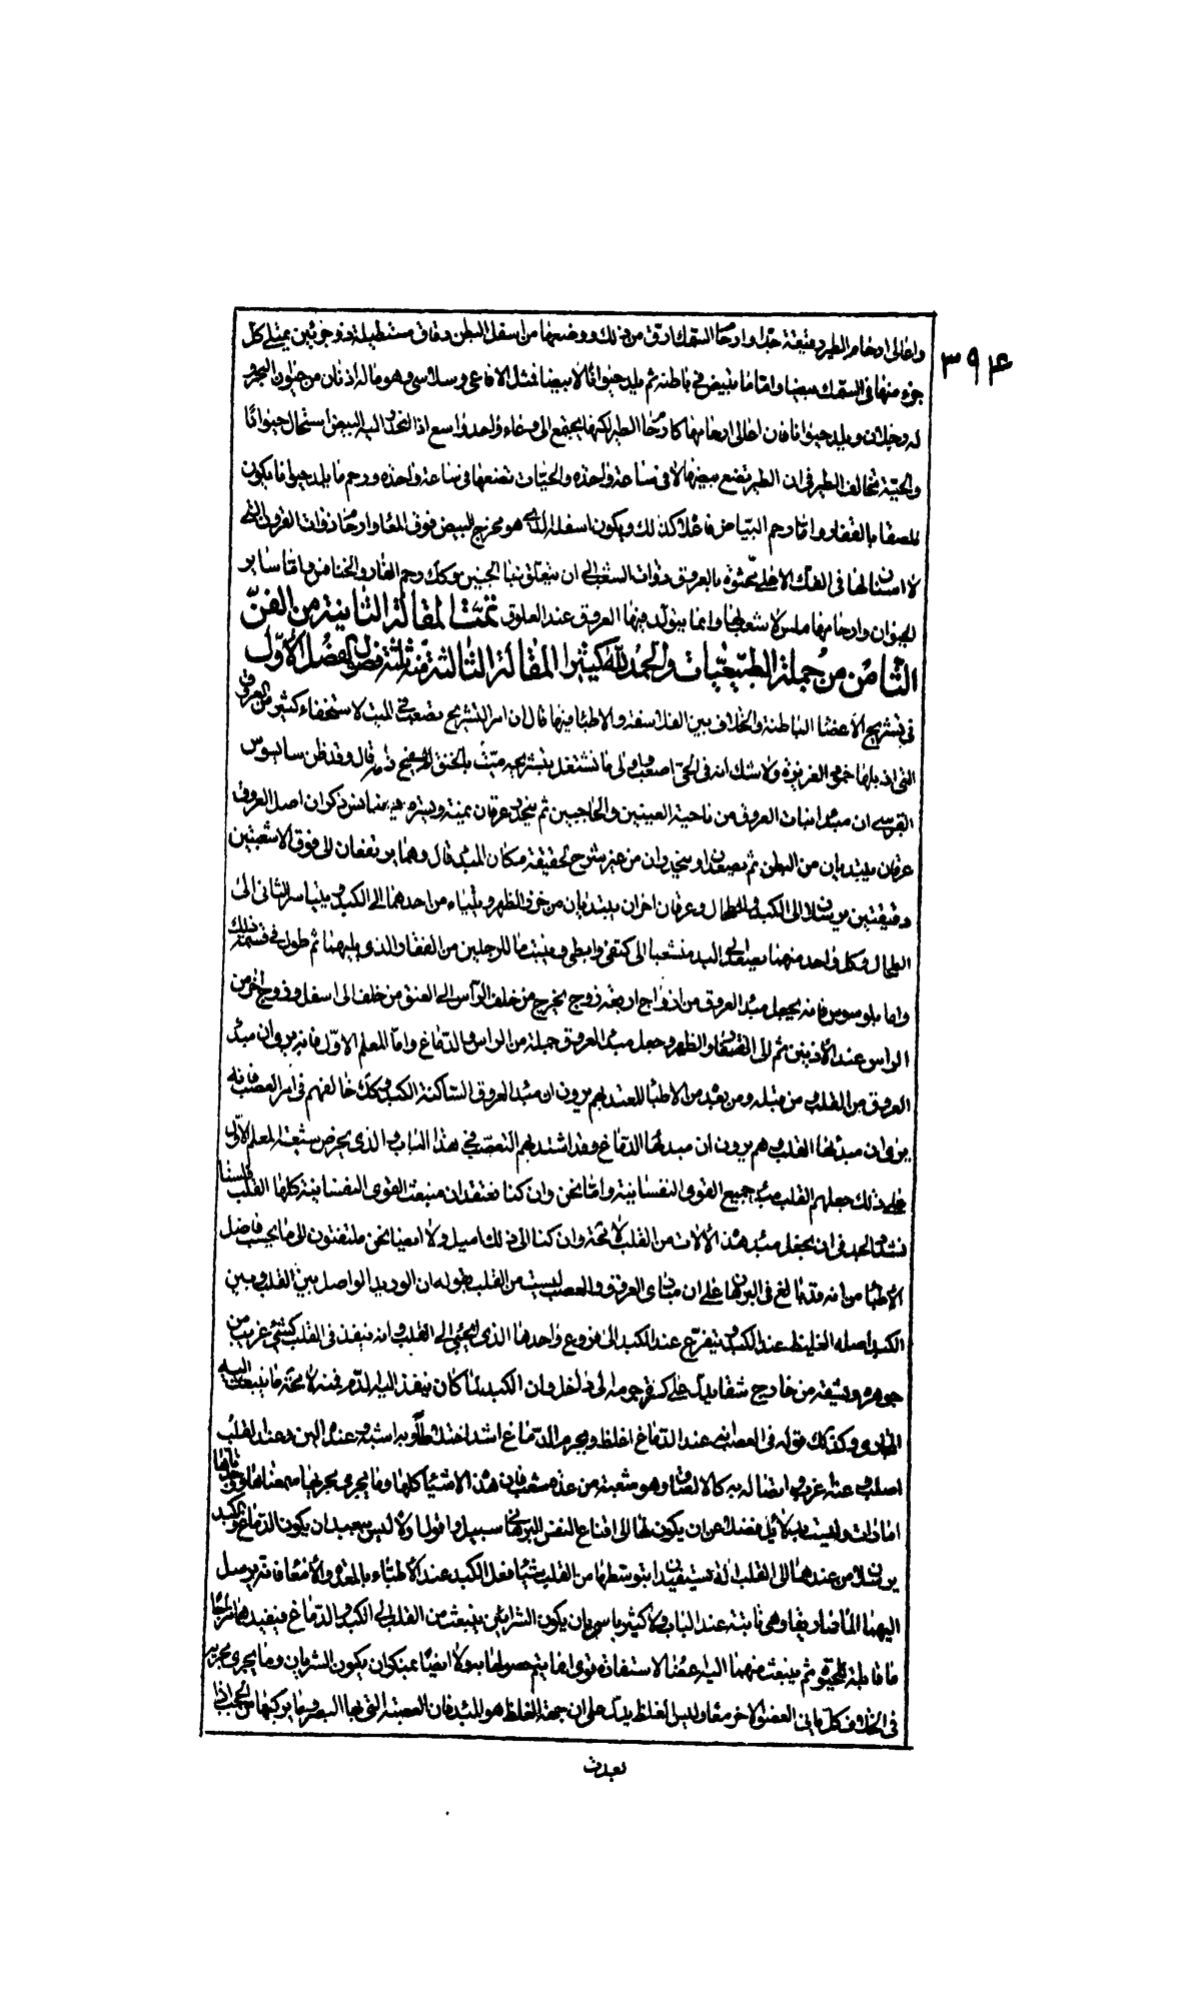 واعالى ارحام الطير دقيقة جدا وارحام السمك ادق من ذلك ووضعها من اسفل البطن دقاق مستطيلة ذو جزئين يمتلى كل
٣٩۴
جزء منها فى السمك بيضا واما ما يبيض فى باطنه ثم يلد حيوانا لا بيضا فمثل الافاعى وسلاسى وهو ما له اذنان من حيوان البحر و
له رجلان ويلد حيوانا فان اعالى ارحامها كارحام الطير لكنها يجتمع الى وعاء واحد واسع اذا انحدر اليه البيض استحال حيوانا
والحية تخالف الطير فى ان الطير تضع بيضها لا فى ساعة واحدة والحيات تضعها فى ساعة واحدة ورحم ما يلد حيوانا يكون
ملصقا بالفقار واما رحم البياض فاعلاه كذلك ويكون اسفله الذى هو مخرج البيض فوق المعا وارحام ذوات القرون التى
لا اسنان لها فى الفك الاعلى محشوة بالعروق ذوات الشعب الى ان يتعلق بها الجنين وكك رحم الفار والخنافس واما ساير
الحيوان وارحامها ملس لا شعب لها وانما يتولد فيها العروق عند العلوق تمت المقالة الثانية من الفن
الثامن من جملة الطبيعيات والحمد لله كثيرا المقالة الثالثة منه ثلثة فصول الفصل الاول
فى تشريح الاعضا الباطنة والخلاف بين الفلاسفة والاطبا فيها قال ان امر التشريح مصعب فى الميت لاستخفاء كثير من العروق
التى يذبلها خمود الغريزة ولا شك انه فى الحى اصعب واولى ما تشتغل بتشريحه ميت بالخنق لم يسفح دمه قال وقد ظن ساليوس
القبرسى ان مبدا انبات العروق من ناحية العينين والحاجبين ثم ينحدر عرقان يمنة ويسرة ديوجانس ذكر ان اصل العروق
عرقان يبتديان من البطن ثم يصعدان او ينحدران من غير شرح لحقيقة مكان المبدا قال وهما يرتفعان الى فوق الا شعبتين
دقيقتين يرسلان الى الكبد والطحال وعرقان اخران يبتديان من خرز الظهر ويتياء من احدهما الى الكبد ويتياسر الثانى الى
الطحال وكل واحد منهما يصعد الى اليد منشعبا الى كتفى وابطى ومنبت ما للرجلين من الفقار الذى يليهما ثم طول فى قسمة ذلك
واما بلوسوس فانه يجعل مبدا العروق من ازواج اربعة زوج يخرج من خلف الراس الى العنق من خلف الى اسفل وزوج اخر من
الراس عند الاذنين ثم الى الفقار والظهر وجعل مبدا العروق جملة من الراس والدماغ واما المعلم الاول فانه يرى ان مبدا
العروق من القلب ومن قبله ومن بعده من الاطبا المعتد بهم يرون ان مبدا العروق الساكنة الكبد وكك خالفهم فى امر العصب فانه
يرى ان مبدئها القلب وهم يرون ان مبدئها الدماغ وقد اشتد بهم التعصب فى هذا الباب والذى يحرض شيعة المعلم الاول
على ذلك جعلهم القلب مبدا جميع القوى النفسانية واما نحن وان كنا نعتقد ان منبعث القوى النفسانية كلها القلب فلسنا
نشدد الحد فى ان يجعل مبدا هذه الالات من القلب لا محة وان كنا الى ذلك اميل ولا ايضا نحن ملتفتون الى ما يحسب فاضل
الاطبا من انه قد بالغ فى البرهان على ان مبادى العروق والعصب ليست من القلب بقوله ان الوريد الواصل بين القلب وبين
الكبد اصله الغليظ عند الكبد ويتفرع عند الكبد الى فروع واحدها الذى يجىء الى القلب وانه ينفذ فى القلب كشىء غريب من
جوهره ويشقه من خارج شقا يدل على كذا فى جومه الى داخل وان الكبد لما كان ينفذ اليه الدم فمنه لا محة ما ينبعث اليه
المجارى وكذلك قوله فى العصب انه عند الدماغ اغلظ وبجرم الدماغ اشد اختلاطا وبه اشبه وعنده الين وعند القلب
اصلب وعنه غريب واتصاله به كالالتصاق وهو متشعبة من عنده متشعب فان هذه الاشيا كلها وما يجرى مجريها سمعناها ووجدناها
امارات وليست بدلائل فضلا عن ان يكون لها الى اقناع النفس البرهانى سبيل واقول اولا ليس ببعيد ان يكون الدماغ والكبد
يرسلان من عندهما الى القلب الة يستفيدان بتوسطها من القلب شيئا مثل الكبد عند الاطباء بالمعدة والامعا فانه يرسل
اليهما الماساريقا وهى نابتة عند الباب ولا كثير باس بان يكون الشرايين ينبعث من القلب الى الكبد والدماغ فيفيدها مزاجا
ما قابلة للحيوة ثم ينبعث منهما اليه عضوا لاستفادة قوى انما يتم حصولها به ولا ايضا بمنكر ان يكون الشريان وما يجرى مجريه
فى الخلاف كل ياتى العضو الاخر معا وليس الغلظ يدل على ان جهة الغلظ هو المبدا فان العصبة التى بها البصر وما يركبها من الحجب اذا
بعدت